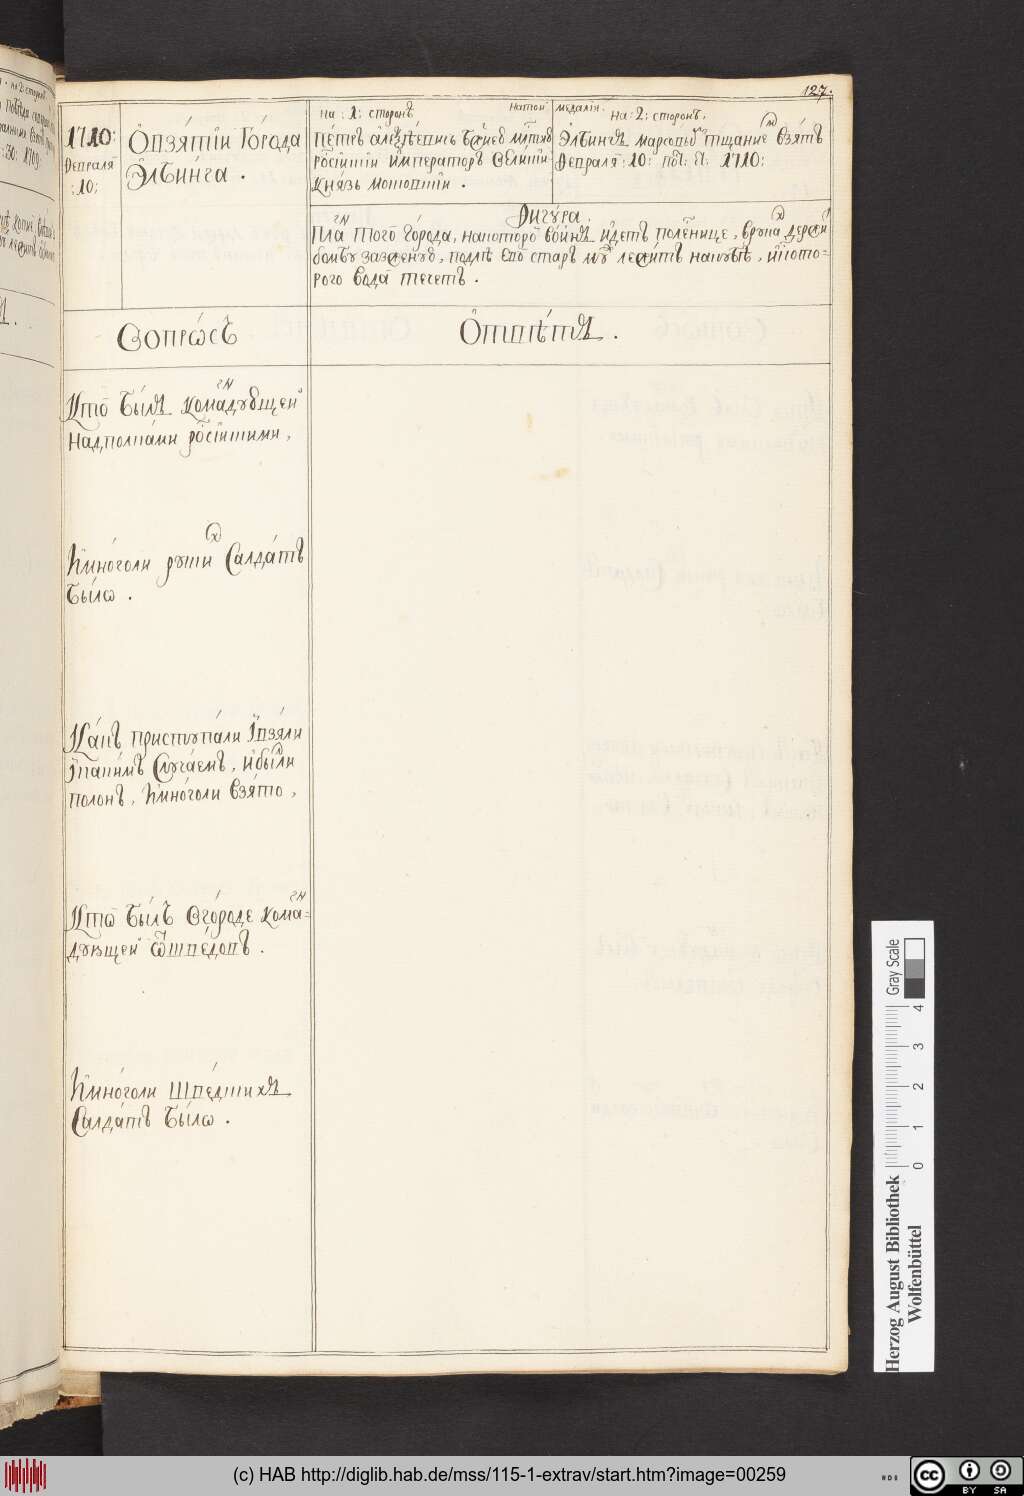 127.
1710:
Февраля
:10:
Ѻвзятіи Города
Элбинга.
на: 1: сторонѣ
натои медаліи:
на: 2: сторонѣ,
Петръ Алеѯѣевичь Бжіею мітію
росіискіи императоръ великіи
князь московскіи.
Элбингъ марсовымъ тщаніе взятъ
февраля: 10: 1710:
Фигура.
Пла того города, накоторо воинъ идетъ поленнице, вруках держи
бомбу зазженую, подлѣ его старъ мужъ лежитъ накубѣ, ис кото=
рого вода течетъ.
Вопрѡсъ
Ѿвѣтъ.
Кто былъ командующеи
надполками росіискими,
Имноголи руских салдатъ
былѡ.
Какъ приступали ивзяли
икакимъ случаемъ, ибыли
полонъ, имноголи взято,
Кто былъ вгороде кома=
дующеи ѿшведовъ.
Имноголи шведскихъ
Салдатъ былѡ.
Gray Scale
0 1 2 3 4
Herzog August Bibliothek
Wolfenbüttel
(c) HAB http://diglib.hab.de/mss/115-1-extrav/start.htm?image=00259
cc BY SA